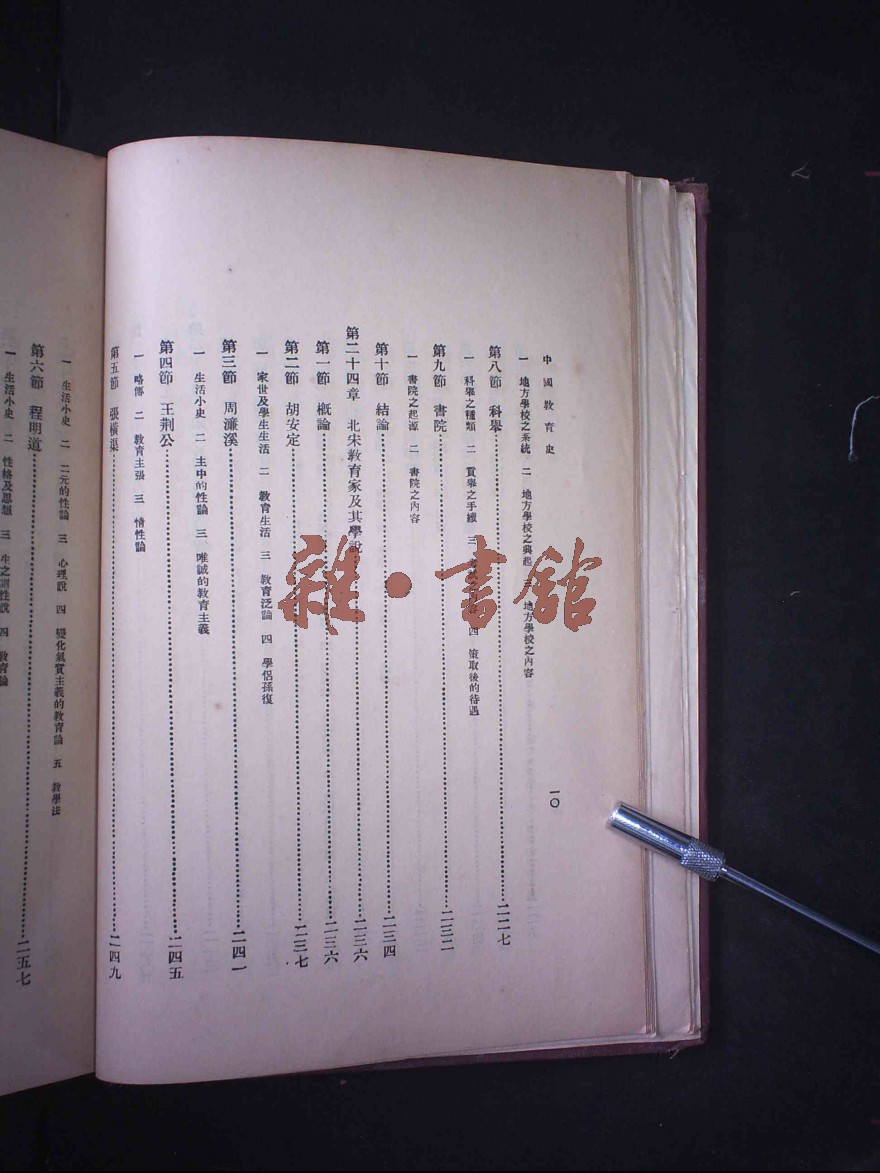 中國教育史
一〇
一 地方學校之系統 二 地方學校之興起 三 地方學校之內容
第八節 科舉……二二七
一 科舉之種類 二 貢舉之手續 三 四 策取後的待遇
第九節 書院……二三二
一 書院之起源 二 書院之內容
第十節 結論……二三四
第二十四章 北宋教育家及其學說……二三六
第一節 概論……二三六
第二節 胡安定……二三七
一 家世及學生生活 二 教育生活 三 教育泛論 四 學侶孫復
第三節 周濂溪……二四一
一 生活小史 二 主中的性論 三 唯誠的教育主義
第四節 王荊公……二四五
一 略傳 二 教育主張 三 情性論
第五節 張橫渠……二四九
一 生活小史 二 二元的性論 三 心理說 四 變化氣質主義的教育論 五 教學法
第六節 程明道……二五七
一 生活小史 二 性格及思想 三 生之謂性說 四 教育論
雜·書館